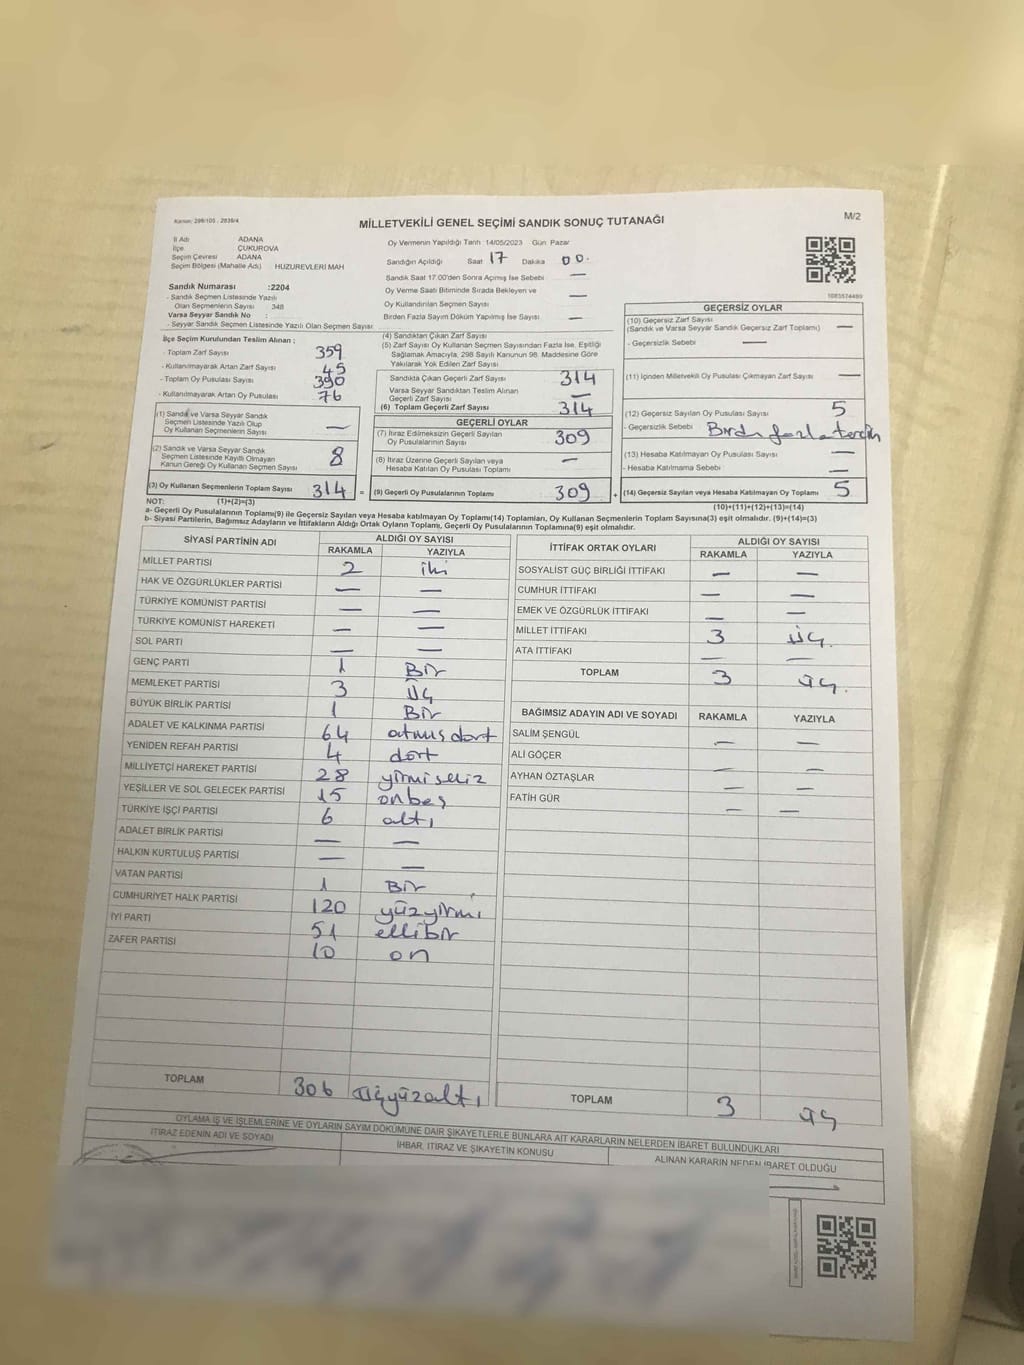 Kanun: 298/105 , 2839/4
MİLLETVEKİLİ GENEL SEÇİMİ SANDIK SONUÇ TUTANAĞI
M/2
İl Adı ADANA
İlçe ÇUKUROVA
Seçim Çevresi ADANA
Seçim Bölgesi (Mahalle Adı) HUZUREVLERİ MAH
Sandık Numarası :2204
- Sandık Seçmen Listesinde Yazılı
Olan Seçmenlerin Sayısı 348
Varsa Seyyar Sandık No :
- Seyyar Sandık Seçmen Listesinde Yazılı Olan Seçmen Sayısı:
Oy Vermenin Yapıldığı Tarih 14/05/2023 Gün Pazar
Sandığın Açıldığı Saat 17 Dakika 00.
Sandık Saat 17.00'den Sonra Açımış İse Sebebi —
Oy Verme Saati Bitiminde Sırada Bekleyen ve
Oy Kullandırılan Seçmen Sayısı —
Birden Fazla Sayım Döküm Yapılmış İse Sayısı —
1083574480
İlçe Seçim Kurulundan Teslim Alınan :
- Toplam Zarf Sayısı 359
- Kullanılmayarak Artan Zarf Sayısı 45
- Toplam Oy Pusulası Sayısı 390
- Kullanılmayarak Artan Oy Pusulası 76
(1) Sandık ve Varsa Seyyar Sandık
Seçmen Listesinde Yazılı Olup
Oy Kullanan Seçmenlerin Sayısı —
(2) Sandık ve Varsa Seyyar Sandık
Seçmen Listesinde Kayıtlı Olmayan
Kanun Gereği Oy Kullanan Seçmen Sayısı 8
(3) Oy Kullanan Seçmenlerin Toplam Sayısı 314 =
(4) Sandıktan Çıkan Zarf Sayısı
(5) Zarf Sayısı Oy Kullanan Seçmen Sayısından Fazla İse, Eşitliği
Sağlamak Amacıyla, 298 Sayılı Kanunun 98. Maddesine Göre
Yakılarak Yok Edilen Zarf Sayısı
Sandıkta Çıkan Geçerli Zarf Sayısı 314
Varsa Seyyar Sandıktan Teslim Alınan
Geçerli Zarf Sayısı —
(6) Toplam Geçerli Zarf Sayısı 314
GEÇERLİ OYLAR
(7) İtiraz Edilmeksizin Geçerli Sayılan
Oy Pusulalarının Sayısı 309
(8) İtiraz Üzerine Geçerli Sayılan veya
Hesaba Katılan Oy Pusulası Toplamı —
(9) Geçerli Oy Pusulalarının Toplamı 309 +
GEÇERSİZ OYLAR
(10) Geçersiz Zarf Sayısı
(Sandık ve Varsa Seyyar Sandık Geçersiz Zarf Toplamı) —
- Geçersizlik Sebebi —
(11) İçinden Milletvekili Oy Pusulası Çıkmayan Zarf Sayısı —
(12) Geçersiz Sayılan Oy Pusulası Sayısı 5
- Geçersizlik Sebebi
(13) Hesaba Katılmayan Oy Pusulası Sayısı —
- Hesaba Katılmama Sebebi —
(14) Geçersiz Sayılan veya Hesaba Katılmayan Oy Toplamı 5
NOT: (1)+(2)=(3)
(10)+(11)+(12)+(13)=(14)
a- Geçerli Oy Pusulalarının Toplamı(9) ile Geçersiz Sayılan veya Hesaba Katılmayan Oy Toplamı(14) Toplamları, Oy Kullanan Seçmenlerin Toplam Sayısına(3) eşit olmalıdır. (9)+(14)=(3)
b- Siyasi Partilerin, Bağımsız Adayların ve İttifakların Aldığı Ortak Oyların Toplamı, Geçerli Oy Pusulalarının Toplamına(9) eşit olmalıdır.
SİYASİ PARTİNİN ADI ALDIĞI OY SAYISI
RAKAMLA YAZIYLA
MİLLET PARTİSİ 2 iki
HAK VE ÖZGÜRLÜKLER PARTİSİ — —
TÜRKİYE KOMÜNİST PARTİSİ — —
TÜRKİYE KOMÜNİST HAREKETİ — —
SOL PARTİ — —
GENÇ PARTİ 1 Bir
MEMLEKET PARTİSİ 3 Üç
BÜYÜK BİRLİK PARTİSİ 1 Bir
ADALET VE KALKINMA PARTİSİ 64 atmış dört
YENİDEN REFAH PARTİSİ 4 dört
MİLLİYETÇİ HAREKET PARTİSİ 28 yirmi sekiz
YEŞİLLER VE SOL GELECEK PARTİSİ 15 onbeş
TÜRKİYE İŞÇİ PARTİSİ 6 altı
ADALET BİRLİK PARTİSİ — —
HALKIN KURTULUŞ PARTİSİ — —
VATAN PARTİSİ 1 Bir
CUMHURİYET HALK PARTİSİ 120 yüzyirmi
İYİ PARTİ 51 ellibir
ZAFER PARTİSİ 10 on
TOPLAM 306 üçyüzaltı
İTTİFAK ORTAK OYLARI ALDIĞI OY SAYISI
RAKAMLA YAZIYLA
SOSYALİST GÜÇ BİRLİĞİ İTTİFAKI — —
CUMHUR İTTİFAKI — —
EMEK VE ÖZGÜRLÜK İTTİFAKI — —
MİLLET İTTİFAKI 3 üç.
ATA İTTİFAKI — —
TOPLAM 3 üç.
BAĞIMSIZ ADAYIN ADI VE SOYADI RAKAMLA YAZIYLA
SALİM ŞENGÜL — —
ALİ GÖÇER — —
AYHAN ÖZTAŞLAR — —
FATİH GÜR — —
TOPLAM 3 üç
OYLAMA İŞ VE İŞLEMLERİNE VE OYLARIN SAYIM DÖKÜMÜNE DAİR ŞİKAYETLERLE BUNLARA AİT KARARLARIN NELERDEN İBARET BULUNDUKLARI
İTİRAZ EDENİN ADI VE SOYADI
İHBAR, İTİRAZ VE ŞİKAYETİN KONUSU
ALINAN KARARIN NEDEN İBARET OLDUĞU